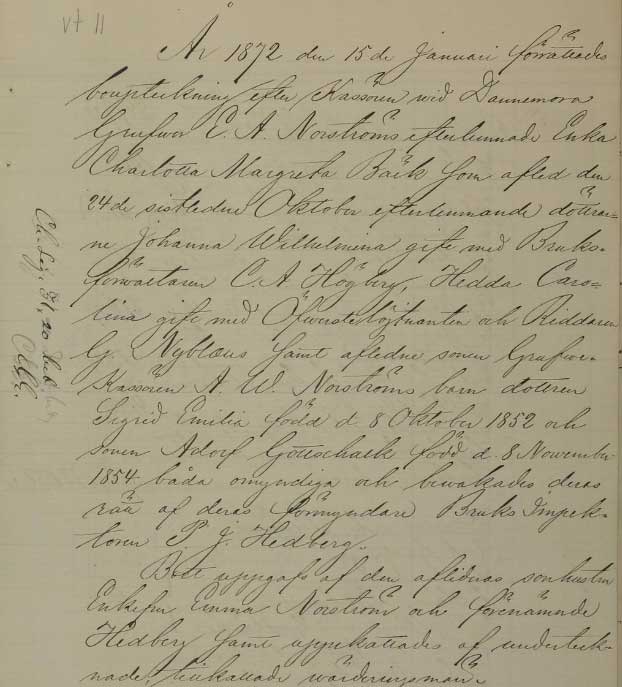 vt 11
År 1872 den 15de Januari förrättades
bouptekning efter Kassören wid Dannemora
Grufwor E. A. Norströms efterlemnade Enka
Charlotta Margreta Bäck som afled den
24de sistledne Oktober efterlemnande döttrar-
ne Johanna Wilhelmina gift med Bruks-
förwaltaren C. A. Högberg, Hedda Caro-
lina gift med Öfwerstelöjtnanten och Riddaren
G. Nyblæus samt aflidne sonen Grufwe-
Kassören A. W. Norströms barn dottren
Sigrid Emilia född d. 8 Oktober 1852 och
sonen Adolf Gottschalk född d. 8 November
1854 båda omyndiga och bewakades deras
rätt af deras förmyndare Bruks Inspek-
toren P. J. Hedberg.
Boet uppgafs af den aflidnas sonhustru
Enkefru Emma Norström och förenämnde
Hedberg samt uppskattades af underteck-
nade, tillkallade wärderingsmän.